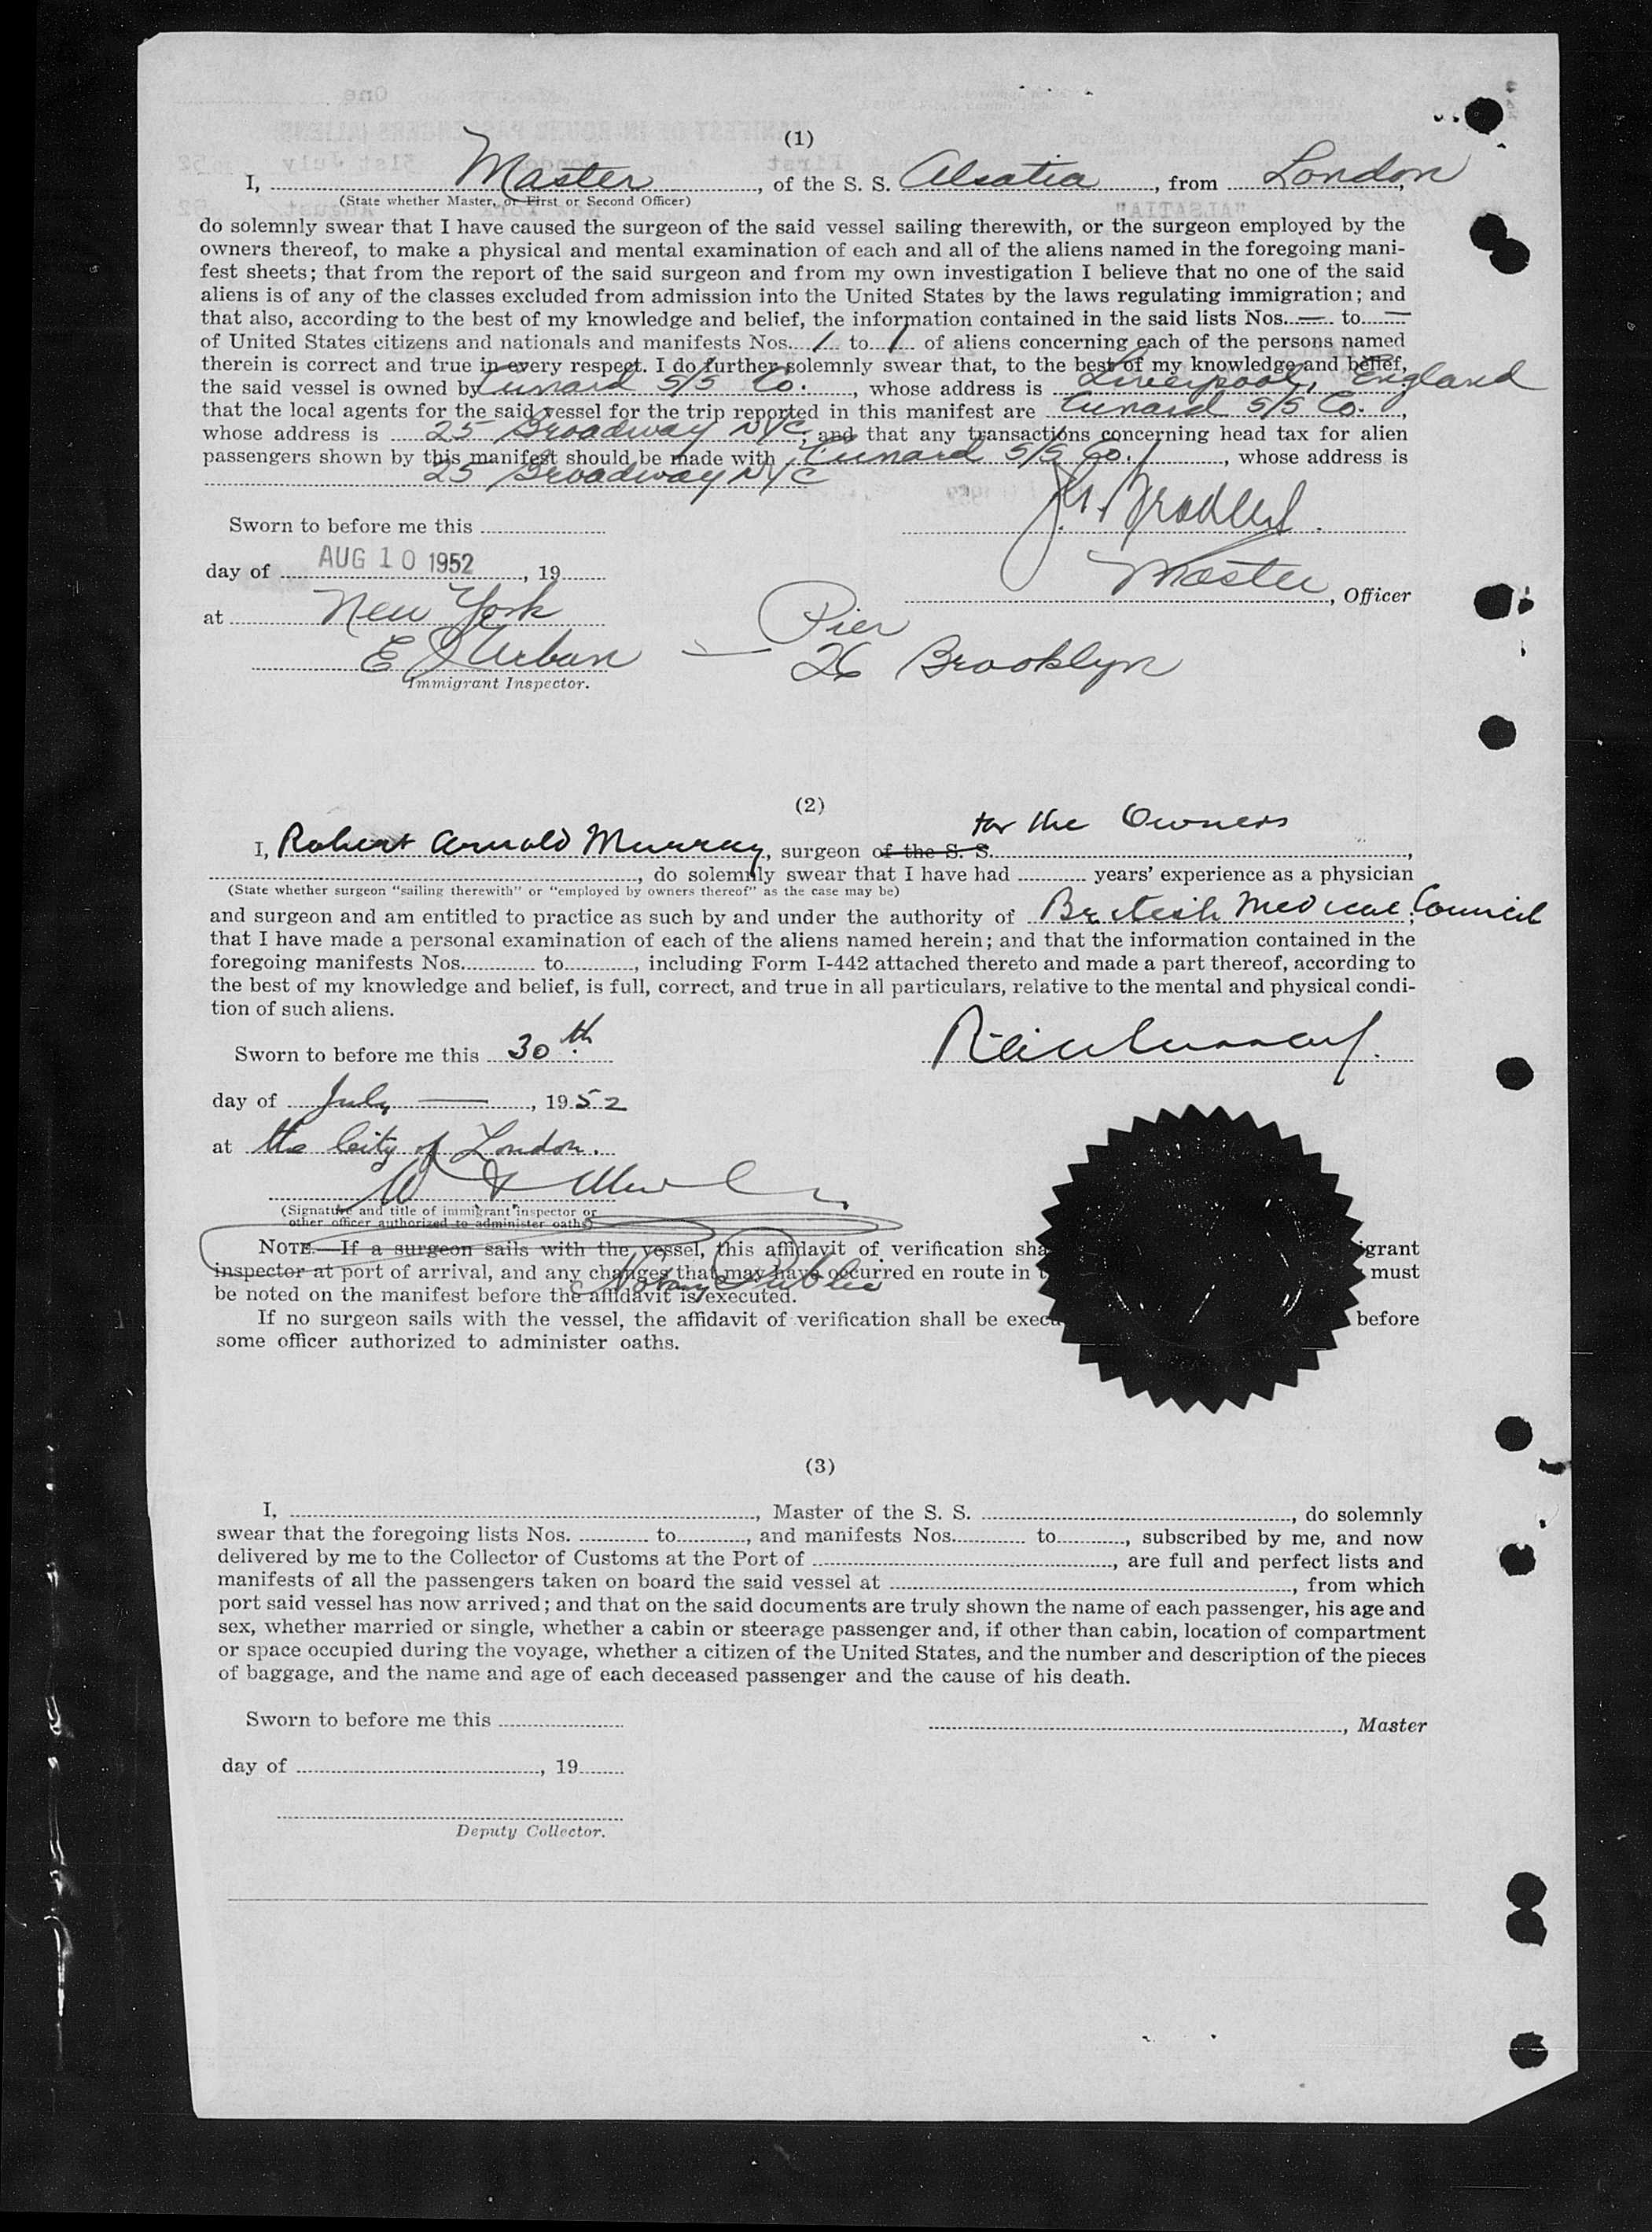 (1)
I, Master, of the S. S. Alsatia, from London,
(State whether Master, or First or Second Officer)
do solemnly swear that I have caused the surgeon of the said vessel sailing therewith, or the surgeon employed by the
owners thereof, to make a physical and mental examination of each and all of the aliens named in the foregoing mani-
fest sheets; that from the report of the said surgeon and from my own investigation I believe that no one of the said
aliens is of any of the classes excluded from admission into the United States by the laws regulating immigration; and
that also, according to the best of my knowledge and belief, the information contained in the said lists Nos. — to —
of United States citizens and nationals and manifests Nos. 1 to 1 of aliens concerning each of the persons named
therein is correct and true in every respect. I do further solemnly swear that, to the best of my knowledge and belief,
the said vessel is owned by Cunard S/S Co., whose address is Liverpool, England
that the local agents for the said vessel for the trip reported in this manifest are Cunard S/S Co.,
whose address is 25 Broadway NYC; and that any transactions concerning head tax for alien
passengers shown by this manifest should be made with Cunard S/S Co., whose address is
25 Broadway NYC
Sworn to before me this
day of AUG 10 1952, 19
Master, Officer
at New York
E J Urban — Pier
26 Brooklyn
Immigrant Inspector.
(2)
for the Owners
I, Robert Arnold Murray, surgeon of the S. S.,
, do solemnly swear that I have had years' experience as a physician
(State whether surgeon "sailing therewith" or "employed by owners thereof" as the case may be)
and surgeon and am entitled to practice as such by and under the authority of British Medical Council;
that I have made a personal examination of each of the aliens named herein; and that the information contained in the
foregoing manifests Nos. to, including Form I-442 attached thereto and made a part thereof, according to
the best of my knowledge and belief, is full, correct, and true in all particulars, relative to the mental and physical condi-
tion of such aliens.
Sworn to before me this 30th
day of July —, 1952
at the City of London.
(Signature and title of immigrant inspector or
other officer authorized to administer oaths)
NOTE.—If a surgeon sails with the vessel, this affidavit of verification sha grant
inspector at port of arrival, and any changes that may have occurred en route in must
Notary Public
be noted on the manifest before the affidavit is executed.
If no surgeon sails with the vessel, the affidavit of verification shall be execu before
some officer authorized to administer oaths.
(3)
I, , Master of the S. S. , do solemnly
swear that the foregoing lists Nos. to, and manifests Nos. to, subscribed by me, and now
delivered by me to the Collector of Customs at the Port of , are full and perfect lists and
manifests of all the passengers taken on board the said vessel at , from which
port said vessel has now arrived; and that on the said documents are truly shown the name of each passenger, his age and
sex, whether married or single, whether a cabin or steerage passenger and, if other than cabin, location of compartment
or space occupied during the voyage, whether a citizen of the United States, and the number and description of the pieces
of baggage, and the name and age of each deceased passenger and the cause of his death.
Sworn to before me this
, Master
day of , 19
Deputy Collector.